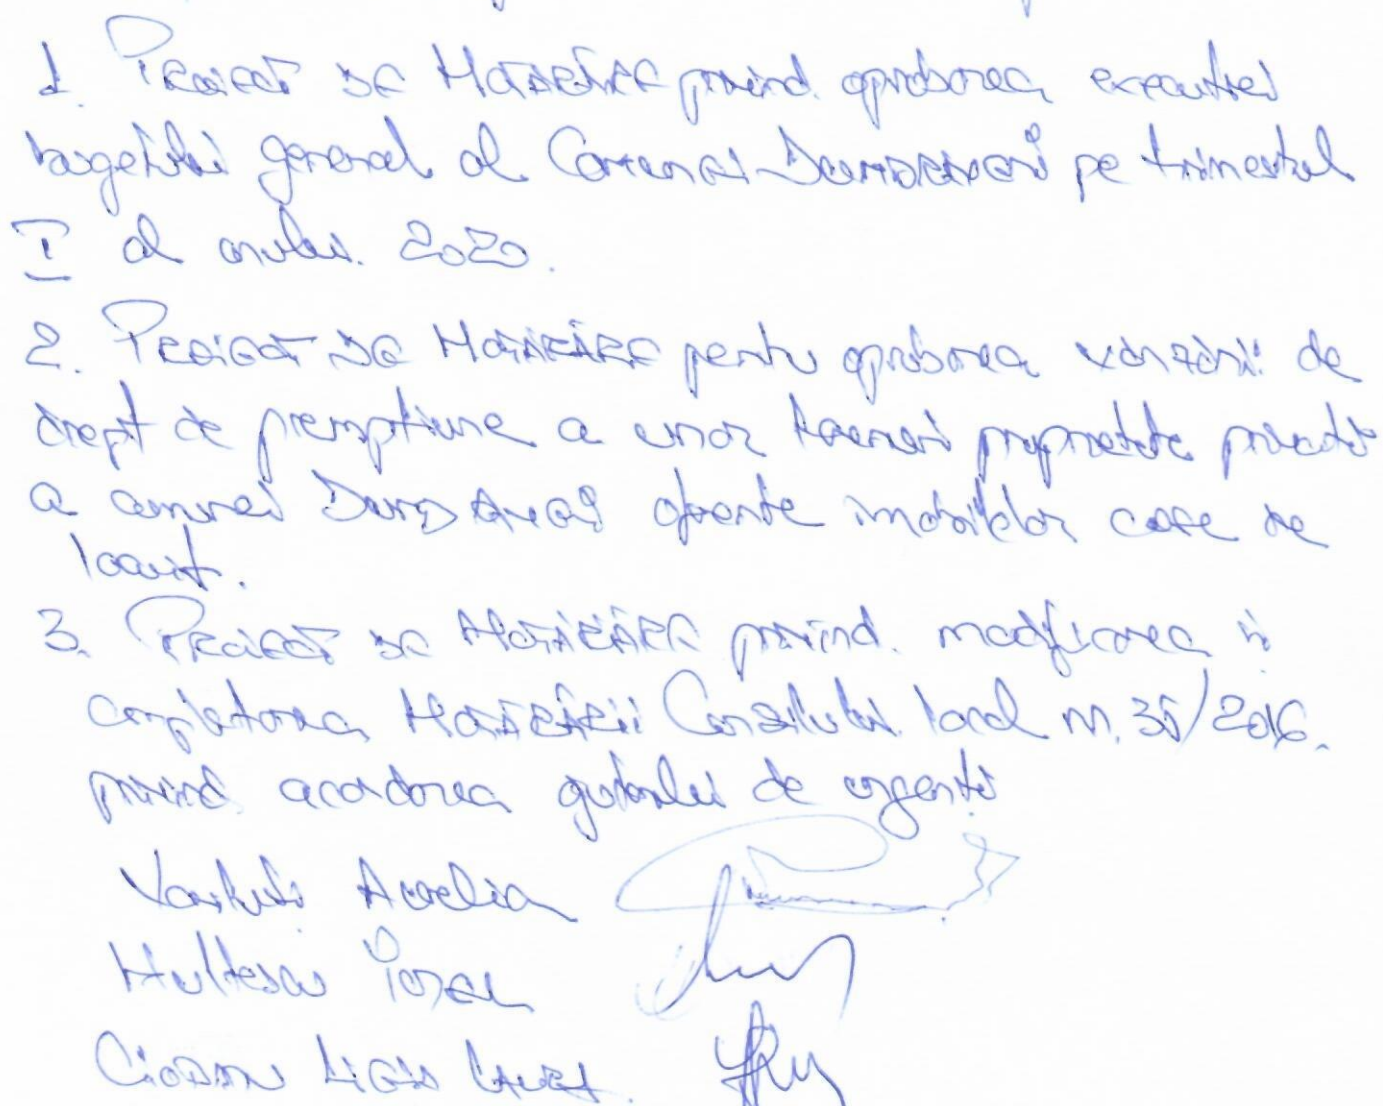 1. Proiect de Hotărâre privind aprobarea execuției
bugetului general al Comunei Dumbrăveni pe trimestrul
I al anului 2020.
2. Proiect de Hotărâre pentru aprobarea vânzării de
drept de preempțiune a unor terenuri proprietate privată
a comunei aferente imobilelor case de
locuit.
3. Proiect de Hotărâre privind modificarea și
completarea Hotărârii Consiliului Local nr. 35/2016
privind acordarea ajutorului de urgență
Aurelia